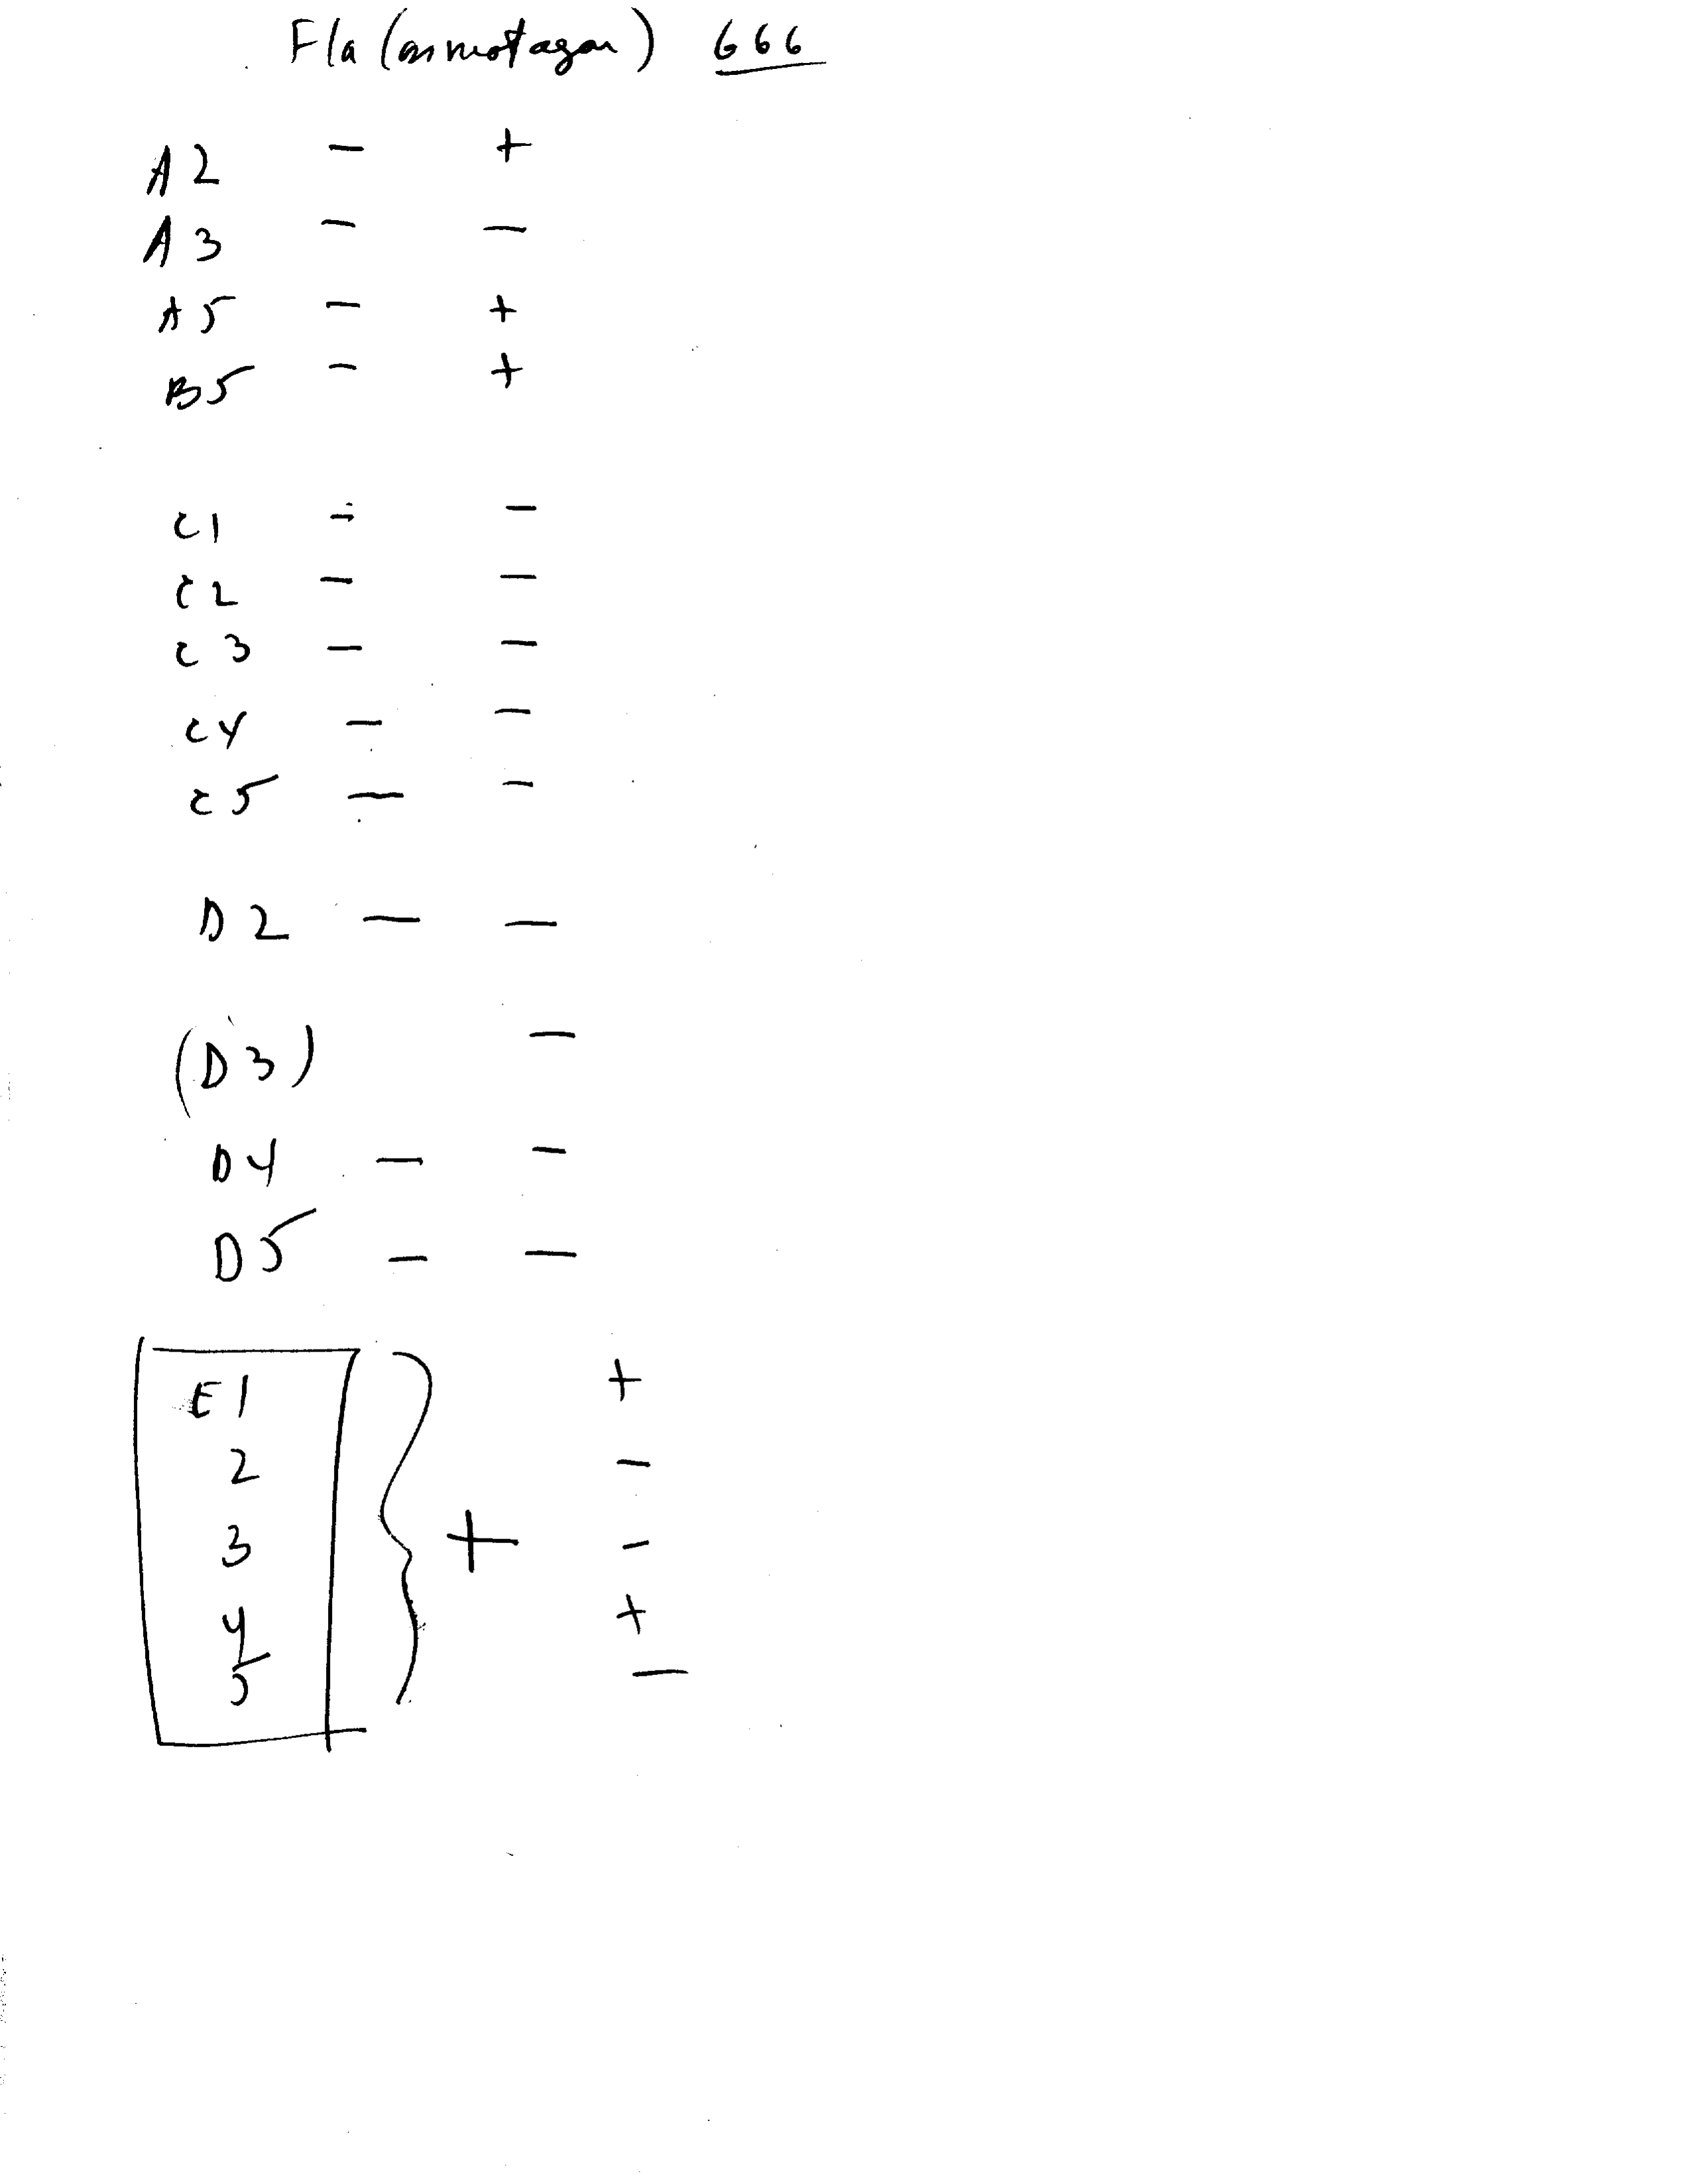 Fla (on mot agar) 666
A2 - +
A3 - -
A5 - +
B5 - +
C1 - -
C2 - -
C3 - -
C4 - -
C5 - -
D2 - -
(D3) -
D4 - -
D5 - -
E1 +
2 -
3 + -
4 +
5 -